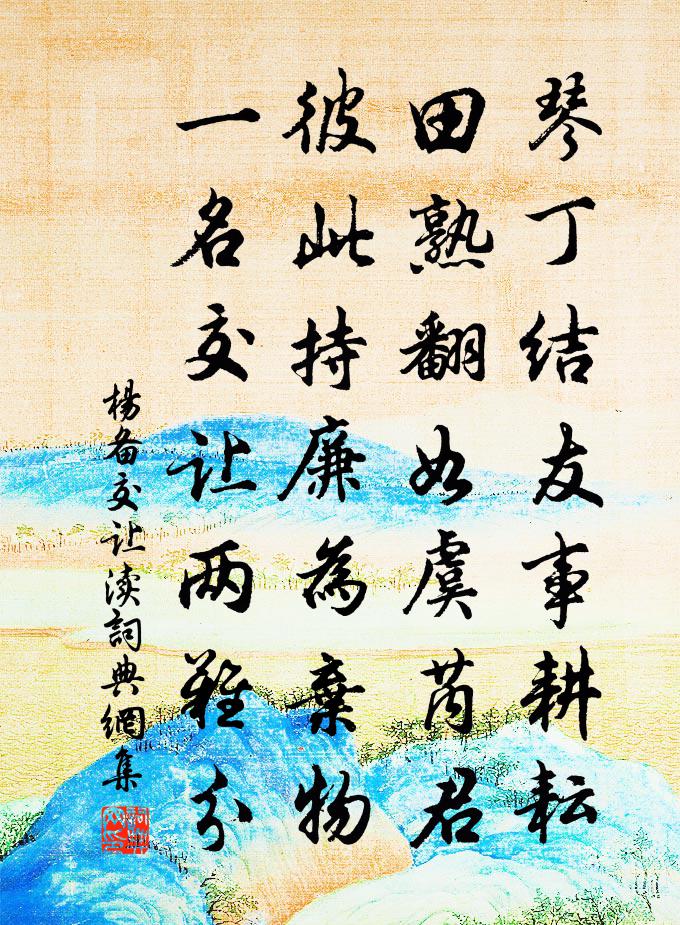 琴丁结友事耕耘
田熟翻如虞芮君
彼此持廉為棄物
一名交让两難分
楊备交让渎詞典網集